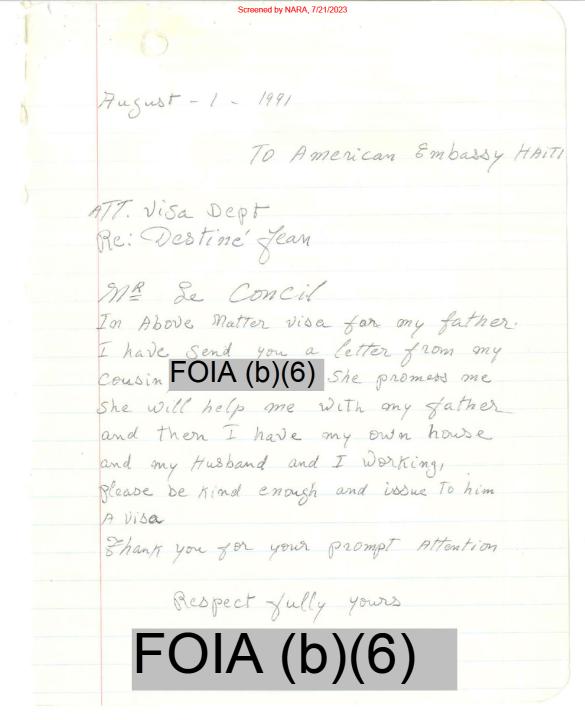 Screened by NARA, 7/21/2023
August - 1 - 1991
To American Embassy HAITI
ATT. Visa Dept
Re: Destiné Jean
MR Le Concil
In Above Matter visa for my father.
I have send you a letter from my
cousin, FOIA (b)(6) She promess me
She will help me with my father
and then I have my own house
and my Husband and I working,
please be kind enough and issue To him
A visa
Thank you for your prompt Attention
Respect fully yours
FOIA (b)(6)